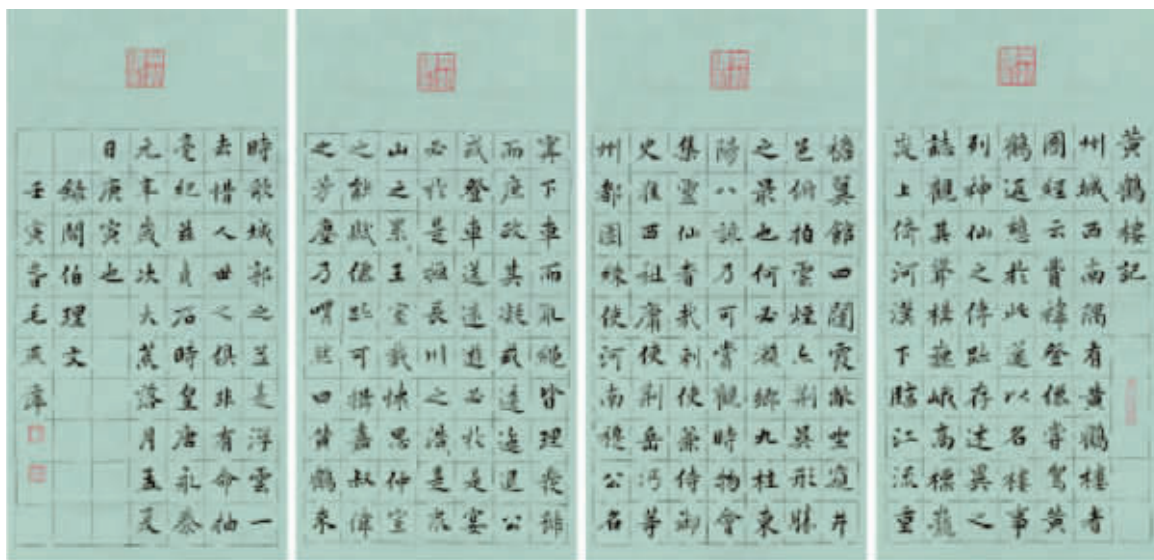 黃鶴樓記
州城西南隅有黃鶴樓者
圖經云費禕登僊嘗駕黃
鶴返憩於此遂以名樓事
列神仙之傳跡存述異之
誌觀其聳構巍峨高標巃
嵸上倚河漢下臨江流重
檐翼館四闥霞敞坐窺井
邑俯拍雲煙亦荊吳形勝
之最也何必瀨鄉九柱東
陽八詠乃可賞觀時物會
集靈仙者哉刺使兼侍御
史淮西租庸使荊岳沔等
州都團練使河南穆公名
寧下車而亂繩皆理發號
而庶政其凝或逶迤退公
或登車送遠遊必於是宴
必於是極長川之浩見衆
山之累王室載懷思仲宣
之能賦僊跡可揖嘉叔偉
之芳塵乃喟然曰黃鶴來
時歌城郭之並是浮雲一
去惜人世之俱非有命抽
毫紀茲貞石時皇唐永泰
元年歲次大荒落月孟夏
日庚寅也
錄閻伯理文
壬寅春毛燕萍